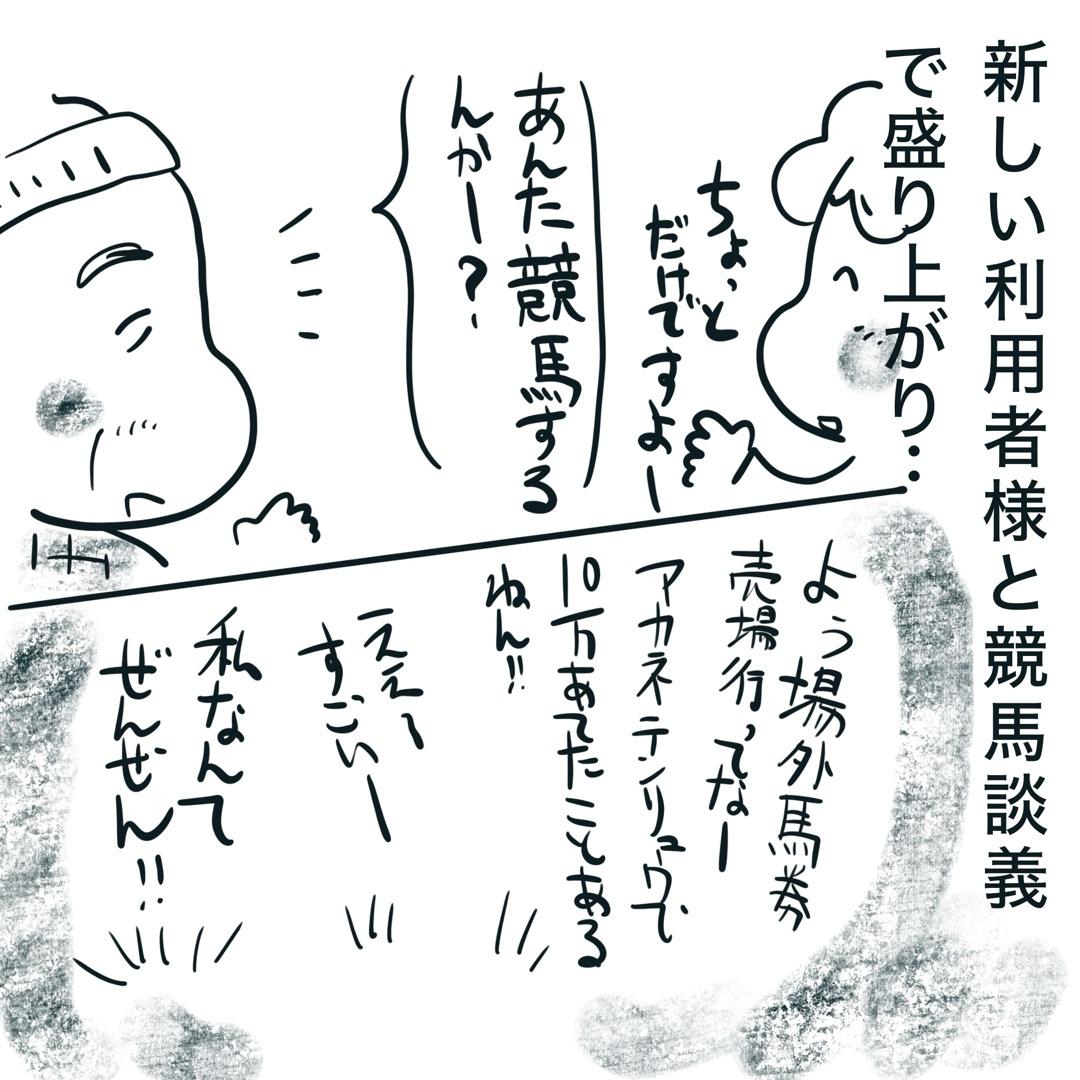 新しい利用者様と競馬談義
で盛り上がり…
ちょっと
だけですよー
あんた競馬する
んかー？
よう場外馬券
売場行ってなー
アカネテンリュウで
10万あてたことある
ねん!!
ええ〜
すごいー
私なんて
ぜんぜん!!